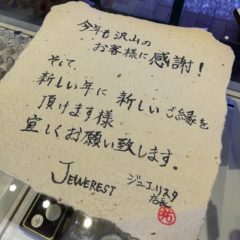 今年も沢山の
お客様に感謝!
そして、
新しい年に新しいご縁を
頂けます様
宜しくお願い致します。
JEWEREST ジュエリスタ
店長